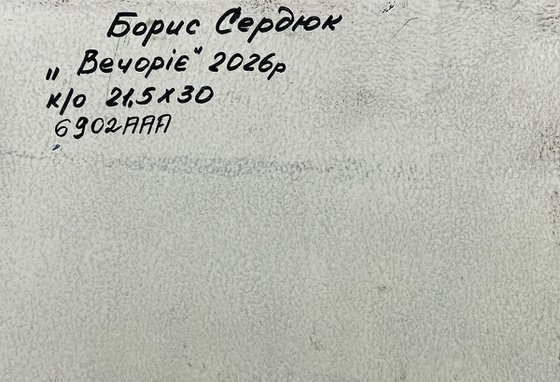 Борис Сердюк
„Вечоріє" 2026р
к/о 21,5х30
6902ААА